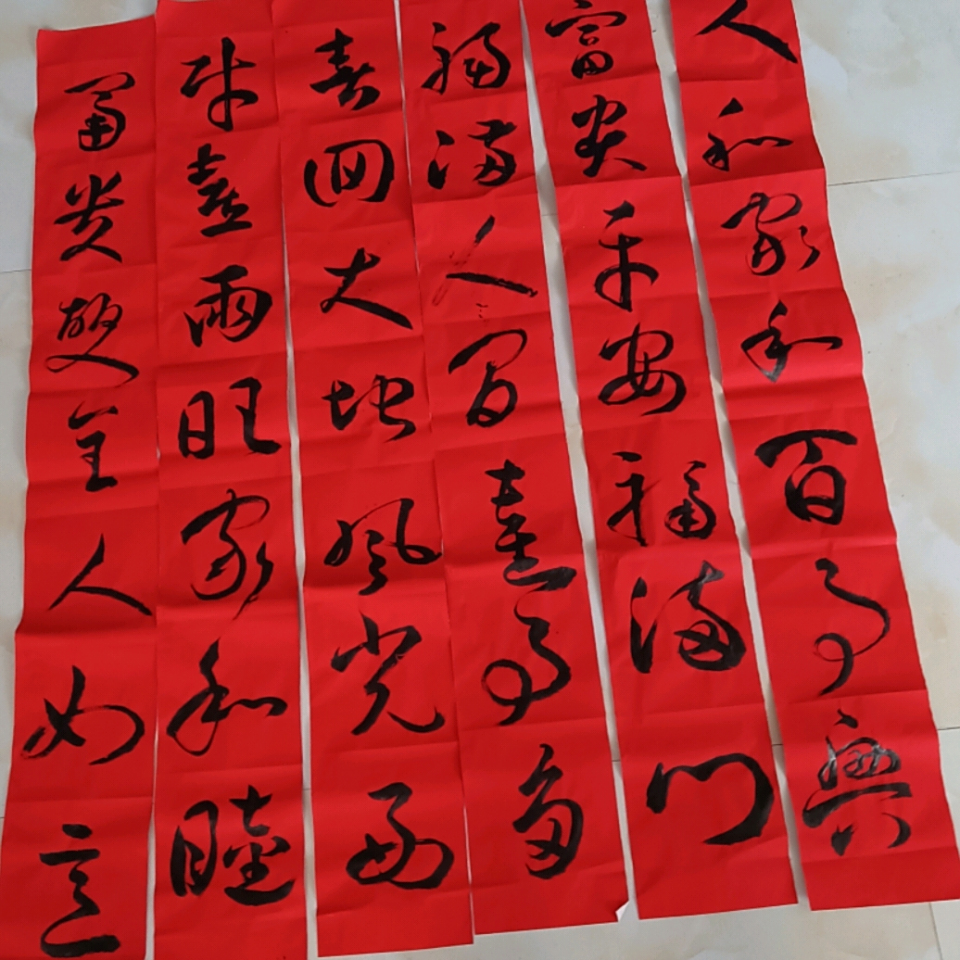 人和家和百事興
富贵平安福满门
福满人间喜事多
春回大地风光好
财喜兩旺家和睦
富贵双全人如意